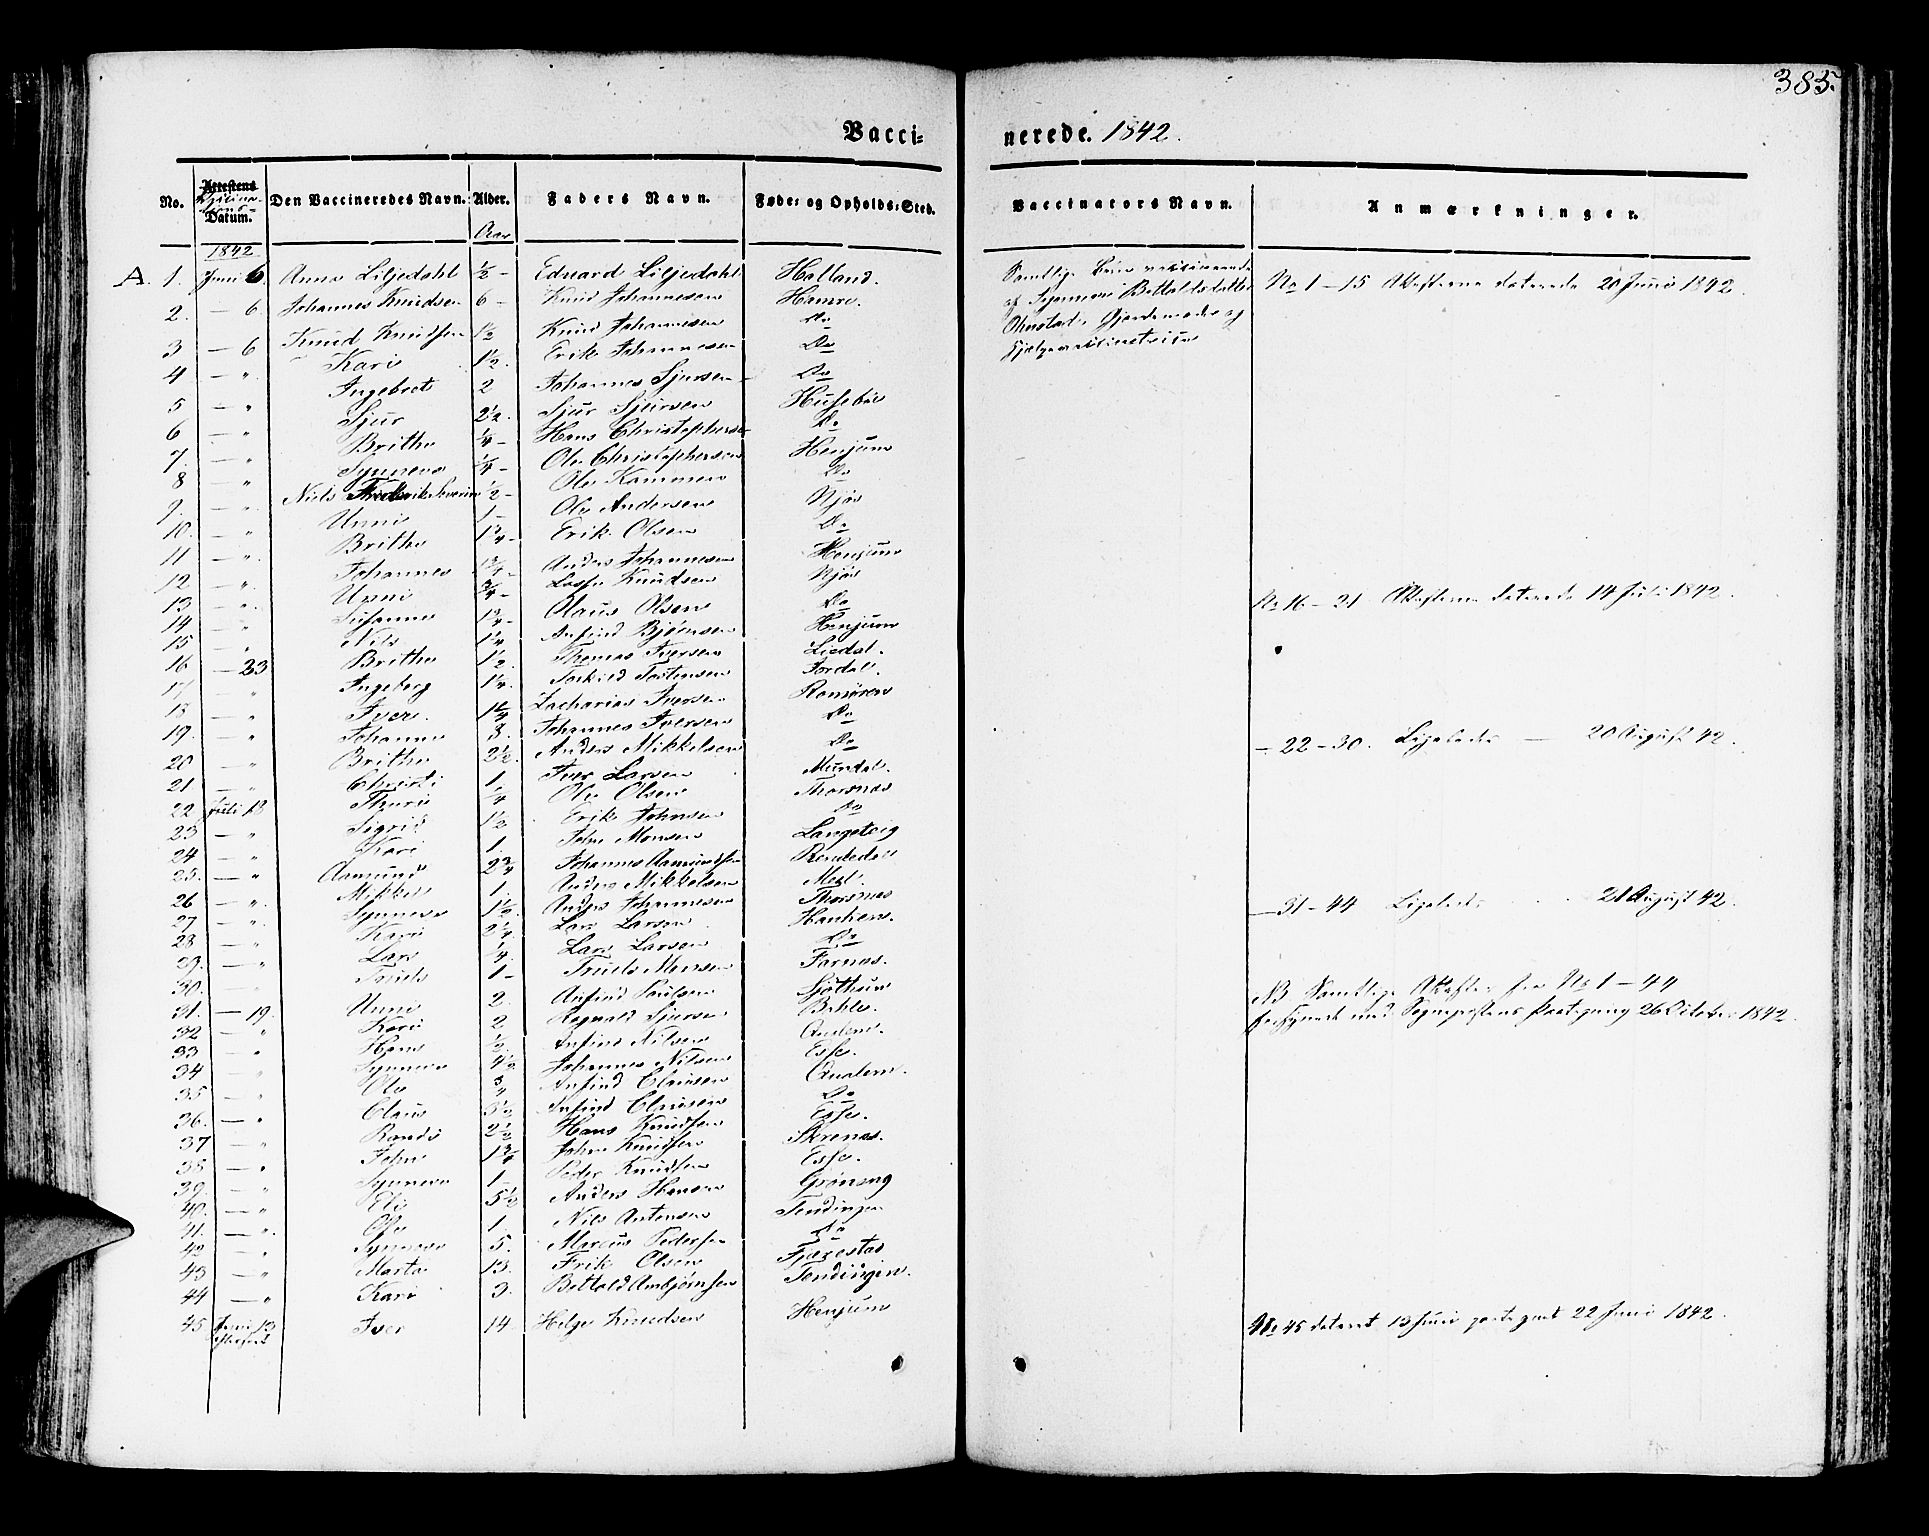 383.
Vacci- nerede. 1842.
No. Attestens Datum. Den Vaccineredes Navn. Alder. Faders Navn. Føde- og Opholds-Sted. Vaccinators Navn. Anmærkninger.
1842 Aar
A. 1. Juni 6. Anna Liljedahl ½ - Edvard Liljedahl Halland.
2. — 6 Johannes Knudsen 6 - Knud Johannesen Hamre.
3 — 6 Knud Knudsen 1½ Knud Johannesen Do
4 — " Kari 1½. Erik Johannesen Do
5 — " Ingebret 2 Johannes Sjursen Do
6 — " Sjur 2½. Sjur Sjursen Husebøe
7. — " Brithe ¼ - Hans Christophersen Do
8 — " Synneva ¼ - Ole Christophersen Henjum
9. — " Niels Frederik Severin ½ - Ole Kammen Do
10. — " Unni 1 - Ole Andersen Njøs
11 — " Brithe 1¼ - Erik Olsen Do
12 — " Johannes 1¾ - Anders Johannesen Henjum
13 — " Unni ¾ - Lasse Knudsen Njøs
14 — " Johanne 1¼ - Claus Olsen Do
15 — " Nils 1¼ Anfind Bjørnsen Henjum
16 — 23 Brithe 1½. Thomas Iversen Liedal.
17 — " Ingeborg 1¼. Torkild Tostensen Jordal.
18 — " Iver. 1¼ Zacharias Iversen Romøren
19. — " Johanne 3. Johannes Iversen Do
20 — " Brithe 2½. Anders Mikkelsen Do
21 — " Christi 1. Iver Larsen Mundal.
22 Juli 18 Thuri ¼ Ole Olsen Thorsnes
23 — " Sigrid 1½ Erik Johnsen Do
24 — " Kari 1. John Monsen Langeteig
25. — " Aamund 2¾ Johannes Aamundsen Rendedal
26 — " Mikkel 1. Anders Mikkelsen Mell.
27 — " Synneve 1½. Anders Johannesen Thorsnes
28 — " Kari 2¼. Lars Larsen Hanhen.
29. — " Lars ¼. Lars Larsen Do
30. — " Truls 1 - Truls Monsen Farnes.
31. — 19. Unni 2. Anfind Paulsen Sjøthun
32 — " Kari 2 Rognald Sjursen Bahle.
33 — " Hans ½. Anfind Nilsen Qualem.
34 — " Synneve 4½ Johannes Nilsen Esse.
35 — " Ole ¾ Anfind Clausen Qualem.
36. — " Claus 3½ Anfind Clausen Do
37 — " Randi 2½ Hans Knudsen Esse.
38 — " John 1¾ John Knudsen Skrenes.
39. — " Synneve 1 Peder Knudsen Esse.
40. — " Eli 5½ Anders Hansen Grøneng
41. — " Ole 1. Nils Antonsen Tendingen
42 — " Synneve 5. Marcus Pedersen Do
43 — " Marta 13. Erik Olsen Fjærestad
44 — " Kari 3. Bottold Ambjørnsen Tendingen.
45 Juni 13 Iver 14 Helge Knudsen Henjum
Samtlige Børn vaccinerede
af
Ohnstad, Gjordemoder og
Hjelpevaccinatrice
No 1 — 15 Attesterne daterede 20 Juni 1842.
No 16 — 21 Attesterne daterede 14 Juli 1842.
— 22 — 30. Ligeledes — 20 August 42.
— 31 — 44 Ligeledes 21 August 42.
NB Samtlige Attester fra No 1 — 44
forsynede med Sognepræstens Paategning 26 October 1842.
No 45 dateret 13 Juni paategnet 22 Juni 1842.